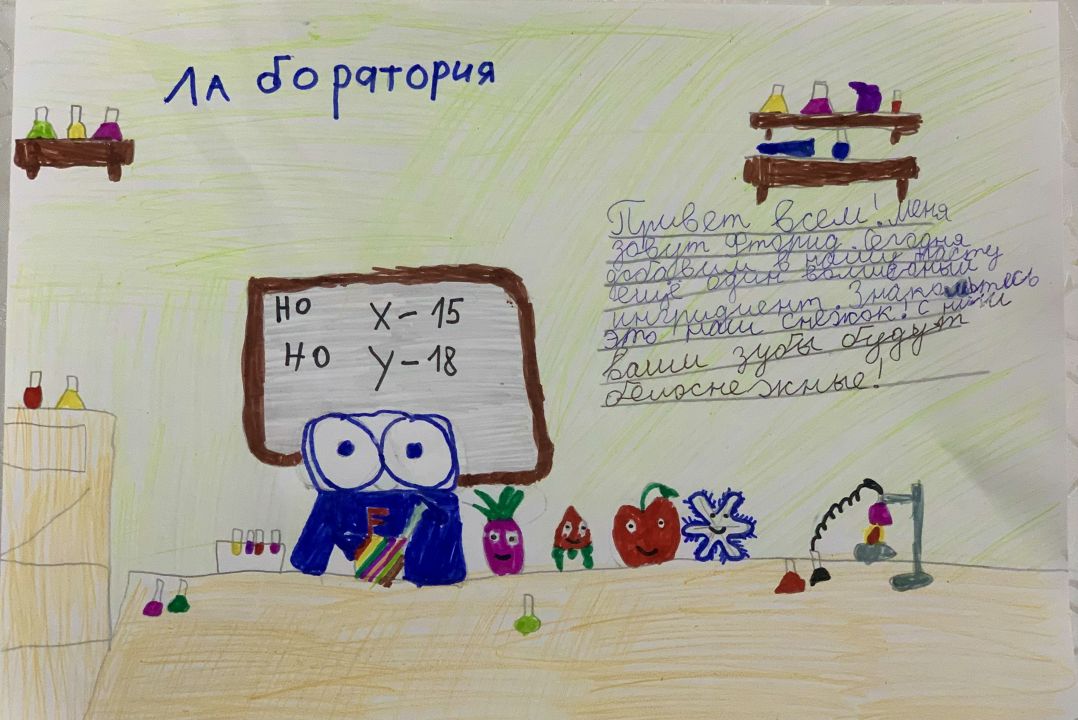 Лаборатория
НО X-15
НО У-18
F
Привет всем! Меня
зовут Фторид. Сегодня
добавили в нашу пасту
еще один волшебный
ингридиент. Знакомьтесь
это наш снежок. С ним
ваши зубы будут
белоснежные!